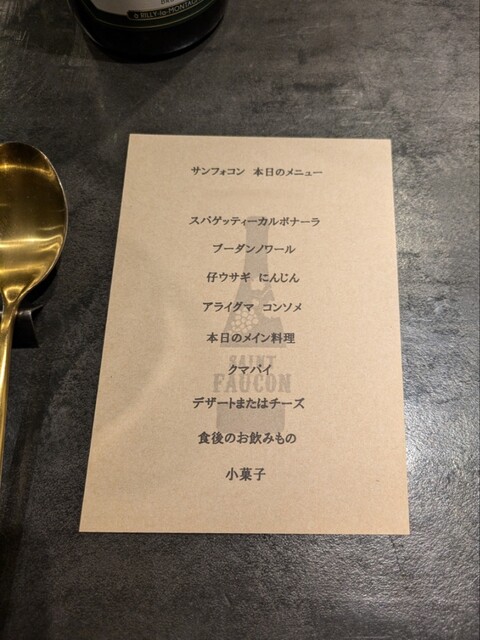 à RILLY-la-MONTAG
サンフォコン 本日のメニュー
スパゲッティーカルボナーラ
ブーダンノワール
仔ウサギ にんじん
アライグマ コンソメ
本日のメイン料理
クマパイ
デザートまたはチーズ
食後のお飲みもの
小菓子
SAINT
FAUCON